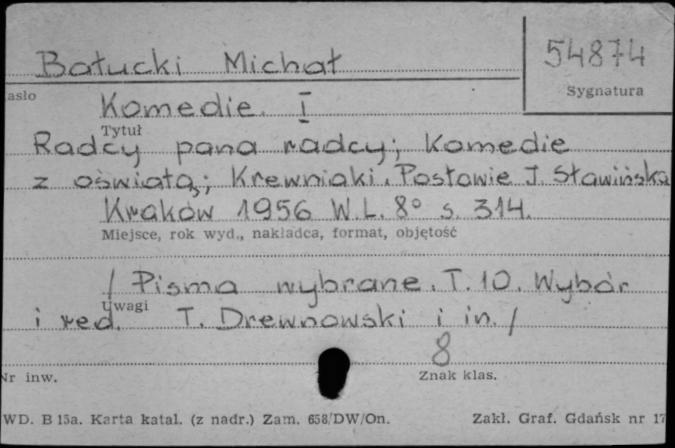 Bałucki Michał
54874
asło
Sygnatura
Komedie. I
Tytuł
Radcy pana radcy; Komedie
z oświatą; Krewniaki. Posłowie J. Sławińska
Kraków 1956 W.L. 8° s. 314.
Miejsce, rok wyd., nakładca, format, objętość
/ Pisma wybrane. T. 10. Wybór
Uwagi
i red. T. Drewnowski i in. /
8
Nr inw.
Znak klas.
WD. B 15a. Karta katal. (z nadr.) Zam. 658/DW/On.
Zakł. Graf. Gdańsk nr 17